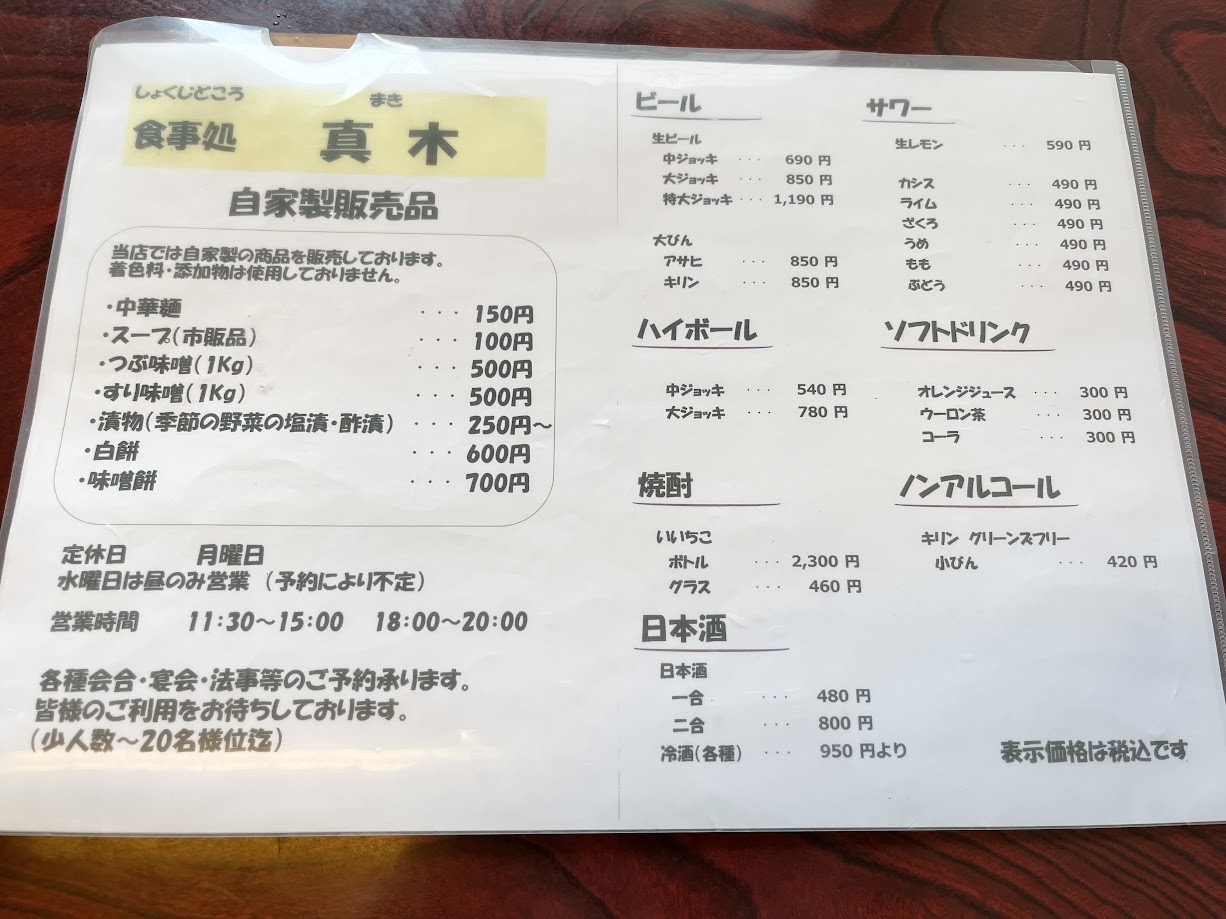 しょくじどころ まき
食事処 真木
自家製販売品
当店では自家製の商品を販売しております。
着色料・添加物は使用しておりません。
・中華麺 ・・・ 150円
・スープ(市販品) ・・・ 100円
・つぶ味噌(1Kg) ・・・ 500円
・すり味噌(1Kg) ・・・ 500円
・漬物(季節の野菜の塩漬・酢漬) ・・・ 250円～
・白餅 ・・・ 600円
・味噌餅 ・・・ 700円
定休日 月曜日
水曜日は昼のみ営業 (予約により不定)
営業時間 11:30～15:00 18:00～20:00
各種会合・宴会・法事等のご予約承ります。
皆様のご利用をお待ちしております。
(少人数～20名様位迄)
ビール
生ビール
中ジョッキ ・・・ 690 円
大ジョッキ ・・・ 850 円
特大ジョッキ ・・・ 1,190 円
大びん
アサヒ ・・・ 850 円
キリン ・・・ 850 円
ハイボール
中ジョッキ ・・・ 540 円
大ジョッキ ・・・ 780 円
焼酎
いいちこ
ボトル ・・・ 2,300 円
グラス ・・・ 460 円
日本酒
日本酒
一合 ・・・ 480 円
二合 ・・・ 800 円
冷酒(各種) ・・・ 950 円より
サワー
生レモン ・・・ 590 円
カシス ・・・ 490 円
ライム ・・・ 490 円
ざくろ ・・・ 490 円
うめ ・・・ 490 円
もも ・・・ 490 円
ぶどう ・・・ 490 円
ソフトドリンク
オレンジジュース ・・・ 300 円
ウーロン茶 ・・・ 300 円
コーラ ・・・ 300 円
ノンアルコール
キリン グリーンズフリー
小びん ・・・ 420 円
表示価格は税込です